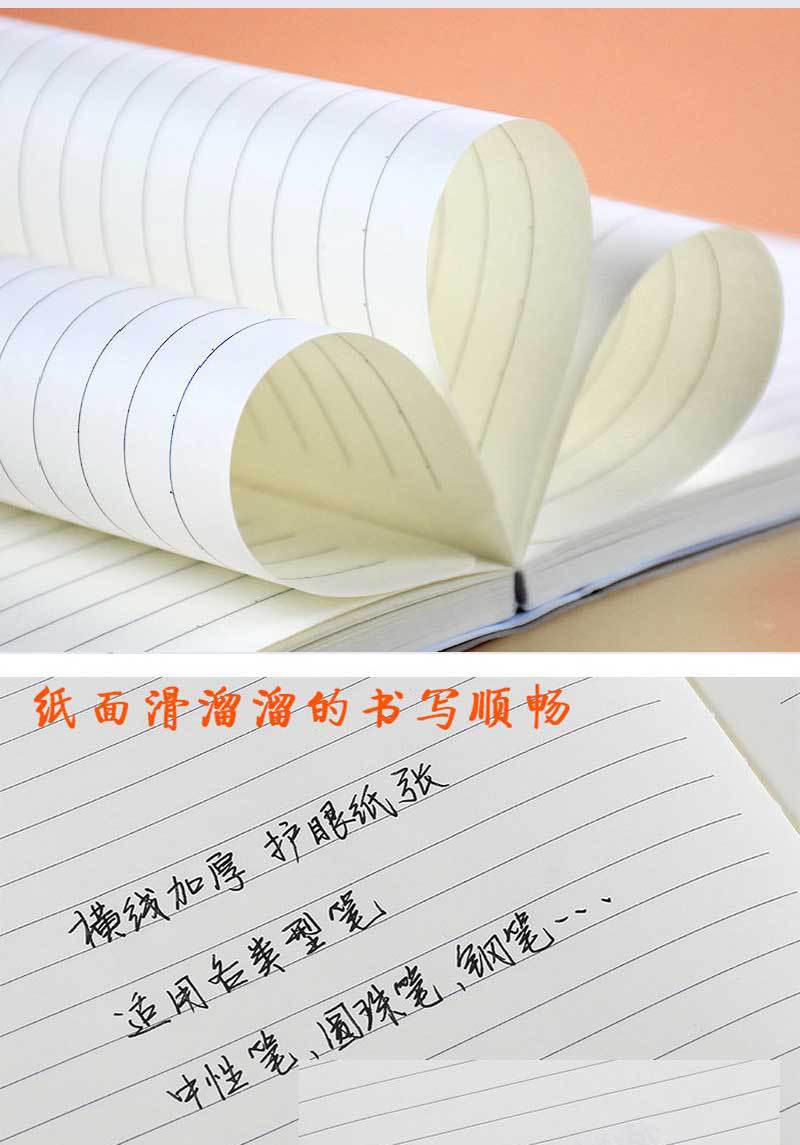 纸面滑溜溜的书写顺畅
横线加厚 护眼纸张
适用各类型笔
中性笔、圆珠笔、钢笔…